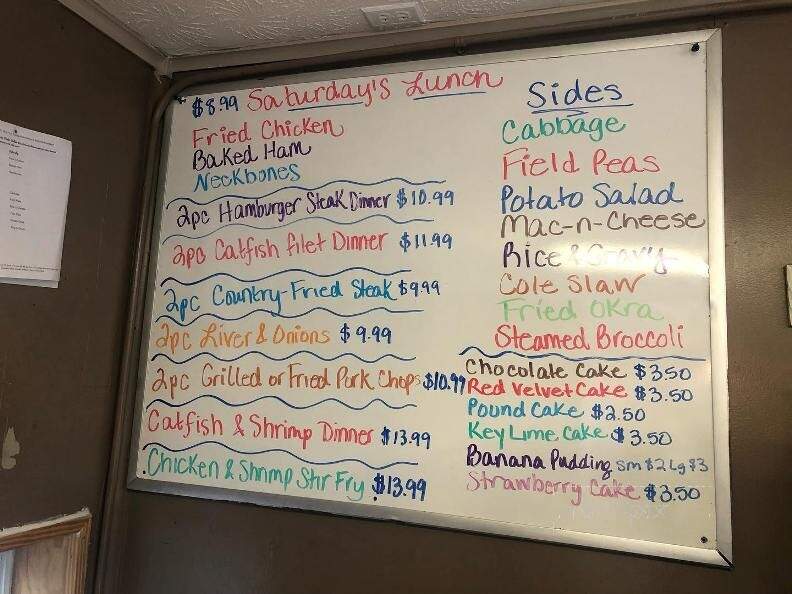 $8.99 Saturday's Lunch
Fried Chicken
Baked Ham
Neckbones
2pc Hamburger Steak Dinner $10.99
2pc Catfish filet Dinner $11.99
2pc Country-Fried Steak $9.99
2pc Liver & Onions $9.99
2pc Grilled or Fried Pork Chops $10.99
Catfish & Shrimp Dinner $13.99
Chicken & Shrimp Stir Fry $13.99
Sides
Cabbage
Field Peas
Potato Salad
Mac-n-Cheese
Rice & Gravy
Cole Slaw
Fried Okra
Steamed Broccoli
Chocolate Cake $3.50
Red Velvet Cake $3.50
Pound Cake $2.50
Key Lime Cake $3.50
Banana Pudding sm $2 Lg $3
Strawberry Cake $3.50